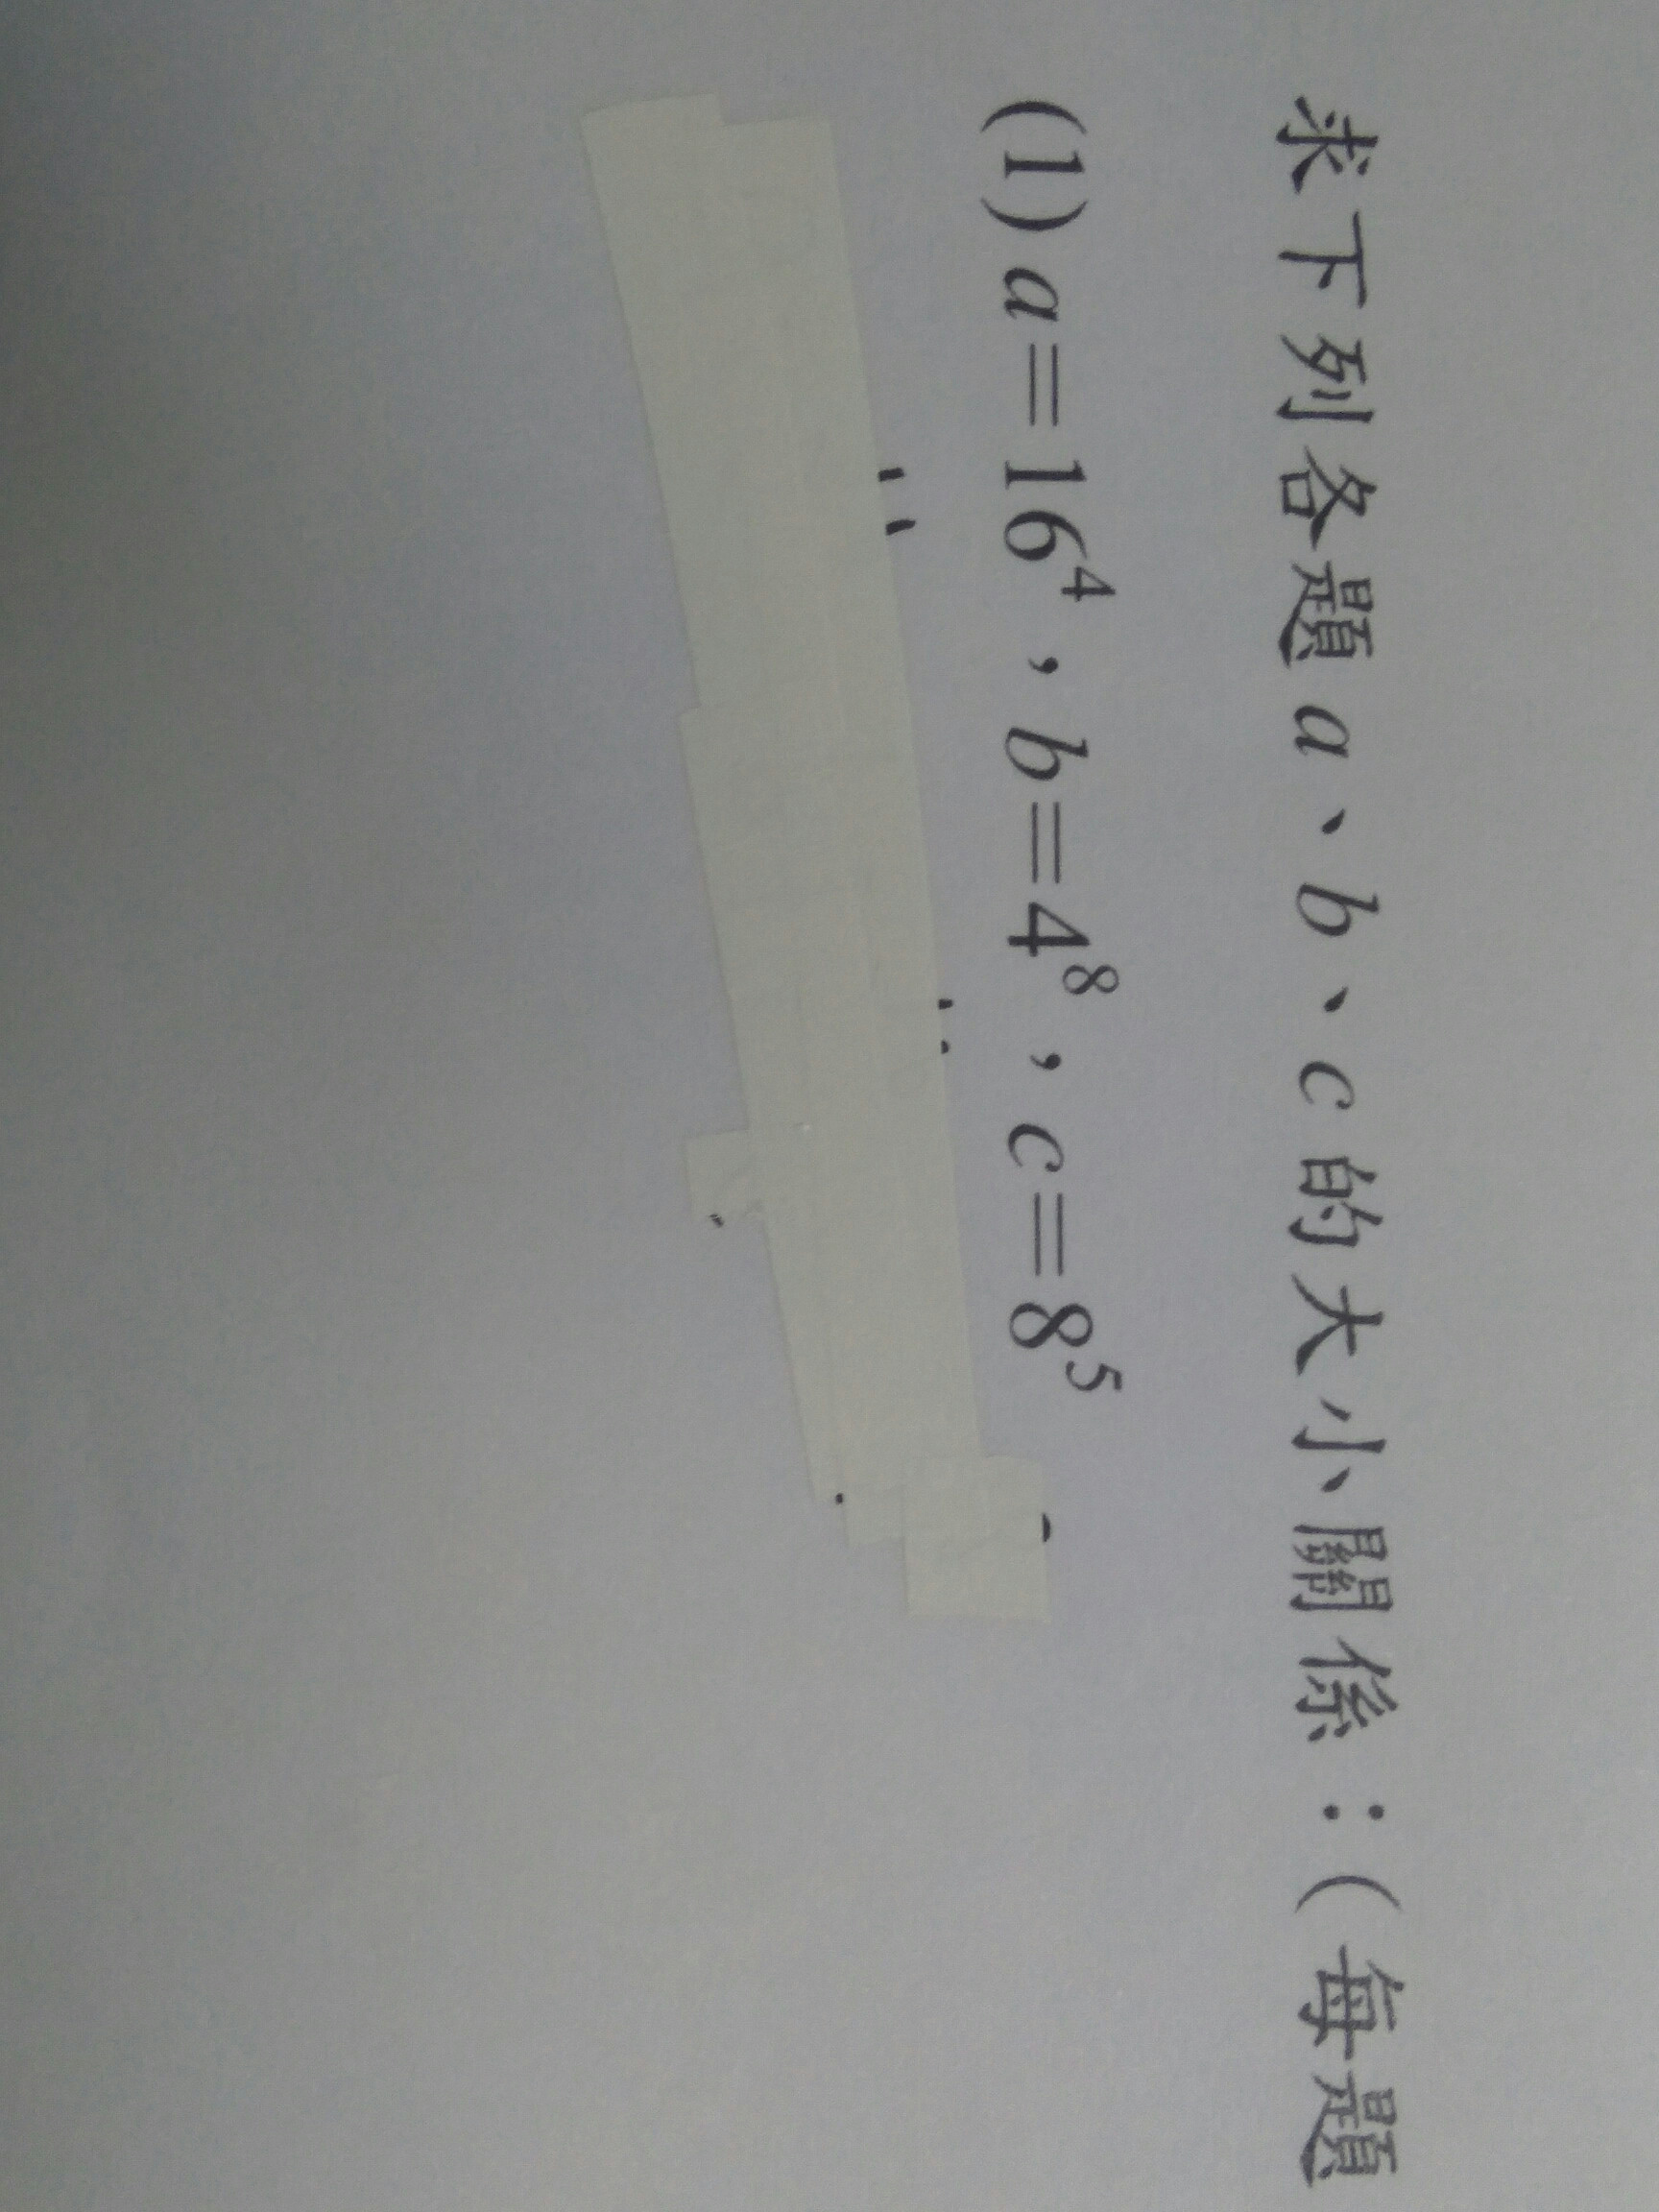 求下列各題 a、b、c 的大小關係：(每題
(1) a=16⁴，b=4⁸，c=8⁵